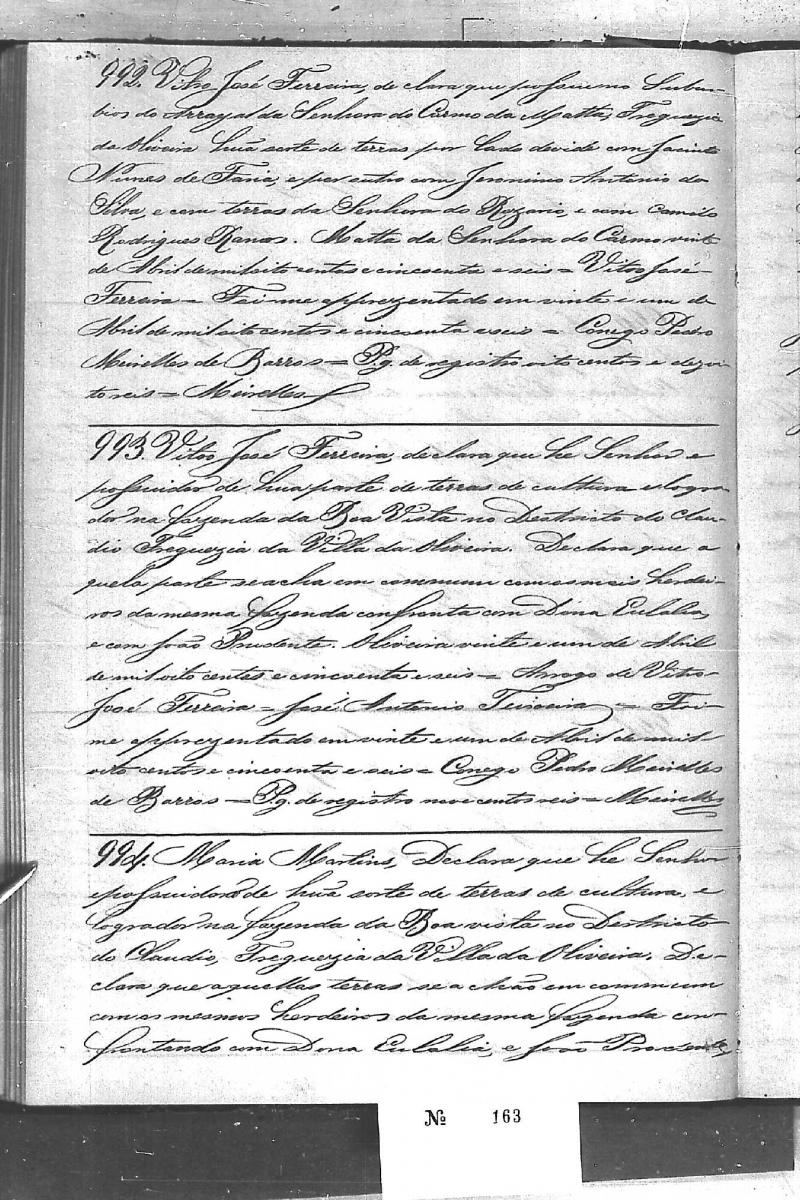 992. Vitro José Ferreira, declara que possue no Subur-
bios do Arrayal da Senhora do Carmo da Matta, Freguezia
da Oliveira huã sorte de terras por lado devide com Jacinto
Nunes de Faria, e por outro com Jeronimo Antonio da
Silva, e com terras da Senhora do Rozario, e com Camilo
Rodrigues Ramos. Matta da Senhora do Carmo vinte
de Abril de mil oito centos e cincoenta e seis = Vitro José
Ferreira = Foi me apprezentado em vinte e um de
Abril de mil oito centos e cincoenta e seis = Conego Pedro
Meirelles de Barros = Pg. de registro oito centos e dezoi-
to reis = Meirelles
993 Vitro José Ferreira, declara que he Senhor e
possuidor de huã parte de terras de cultura e logra-
dor na fazenda da Boa Vista no Destricto do Clau-
dio Freguezia da Villa da Oliveira. Declara que a
quela parte se acha em commum com os mais herdei-
ros da mesma fazenda confronta com Dona Eulalia,
e com João Prudente. Oliveira vinte e um de Abril
de mil oito centos e cincoenta e seis = Arrogo de Vitro
José Ferreira = José Antonio Teixeira = Foi
me apprezentado em vinte e um de Abril de mil
oito centos e cincoenta e seis = Conego Pedro Meirelles
de Barros = Pg. de registro nove centos reis = Meirelles
994. Maria Martins, Declara que he Senhora
e possuidora de huã sorte de terras de cultura, e
logrador na fazenda da Boa vista no Destricto
do Claudio, Freguezia da Villa da Oliveira. De-
clara que aquellas terras se achão em commum
com os mesmos herdeiros da mesma fazenda con-
frontando com Dona Eulalia, e João Prudente,
№ 163